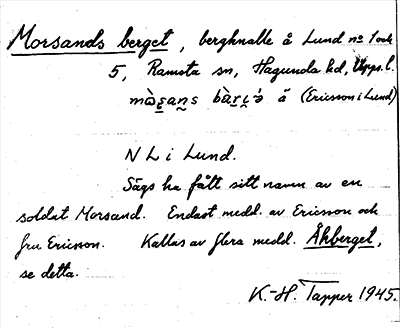 Morsands berget, bergknalle å Lund no 1 och
5, Ramsta sn, Hagunda hd, Upps. l.
å (Ericsson i Lund)
N L i Lund.
Sägs ha fått sitt namn av en
soldat Morsand. Endast medd. av Ericsson och
fru Ericsson. Kallas av flera medd. Åkberget,
se detta.
K.-H. Tapper 1945.